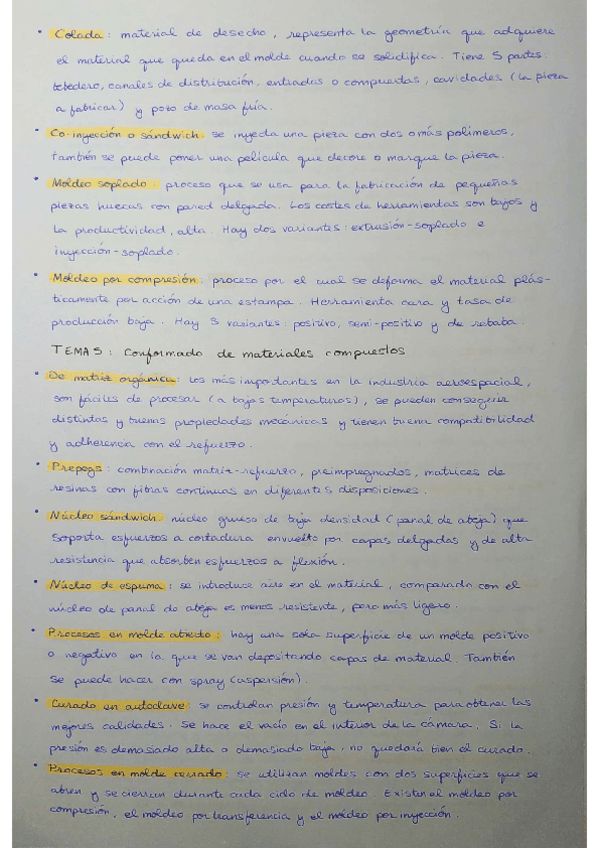 • Colada: material de desecho, representa la geometría que adquiere
el material que queda en el molde cuando se solidifica. Tiene 5 partes:
bebedero, canales de distribución, entradas o compuertas, cavidades (la pieza
a fabricar) y pozo de masa fría.
• Co-inyección o sándwich: se inyecta una pieza con dos o más polímeros,
también se puede poner una película que decore o marque la pieza.
• Moldeo soplado: proceso que se usa para la fabricación de pequeñas
piezas huecas con pared delgada. Los costes de herramientas son bajos y
la productividad, alta. Hay dos variantes: extrusión-soplado e
inyección-soplado.
• Moldeo por compresión: proceso por el cual se deforma el material plás-
ticamente por acción de una estampa. Herramienta cara y tasa de
producción baja. Hay 3 variantes: positivo, semi-positivo y de rebaba.
TEMA 5: Conformado de materiales compuestos
• De matriz orgánica: los más importantes en la industria aeroespacial,
son fáciles de procesar (a bajas temperaturas), se pueden conseguir
distintas y buenas propiedades mecánicas y tienen buena compatibilidad
y adherencia con el refuerzo.
• Prepegs: combinación matriz-refuerzo, preimpregnados, matrices de
resinas con fibras continuas en diferentes disposiciones.
• Núcleo sándwich: núcleo grueso de baja densidad (panal de abeja) que
soporta esfuerzos a cortadura envuelto por capas delgadas y de alta
resistencia que absorben esfuerzos a flexión.
• Núcleo de espuma: se introduce aire en el material, comparado con el
núcleo de panal de abeja es menos resistente, pero más ligero.
• Procesos en molde abierto: hay una sola superficie de un molde positivo
o negativo en la que se van depositando capas de material. También
se puede hacer con spray (aspersión).
• Curado en autoclave: se controlan presión y temperatura para obtener las
mejores calidades. Se hace el vacío en el interior de la cámara. Si la
presión es demasiado alta o demasiado baja, no quedará bien el curado.
• Procesos en molde cerrado: se utilizan moldes con dos superficies que se
abren y se cierran durante cada ciclo de moldeo. Existen el moldeo por
compresión, el moldeo por transferencia y el moldeo por inyección.